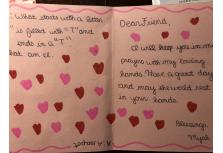 What starts with a letter
is filled with "T" and
ends in a "T".
Dear Friend,
I will keep you in my
prayers with my loving
hands. Have a great day
and may the world rest
in your hands.
Blessings,
Myah